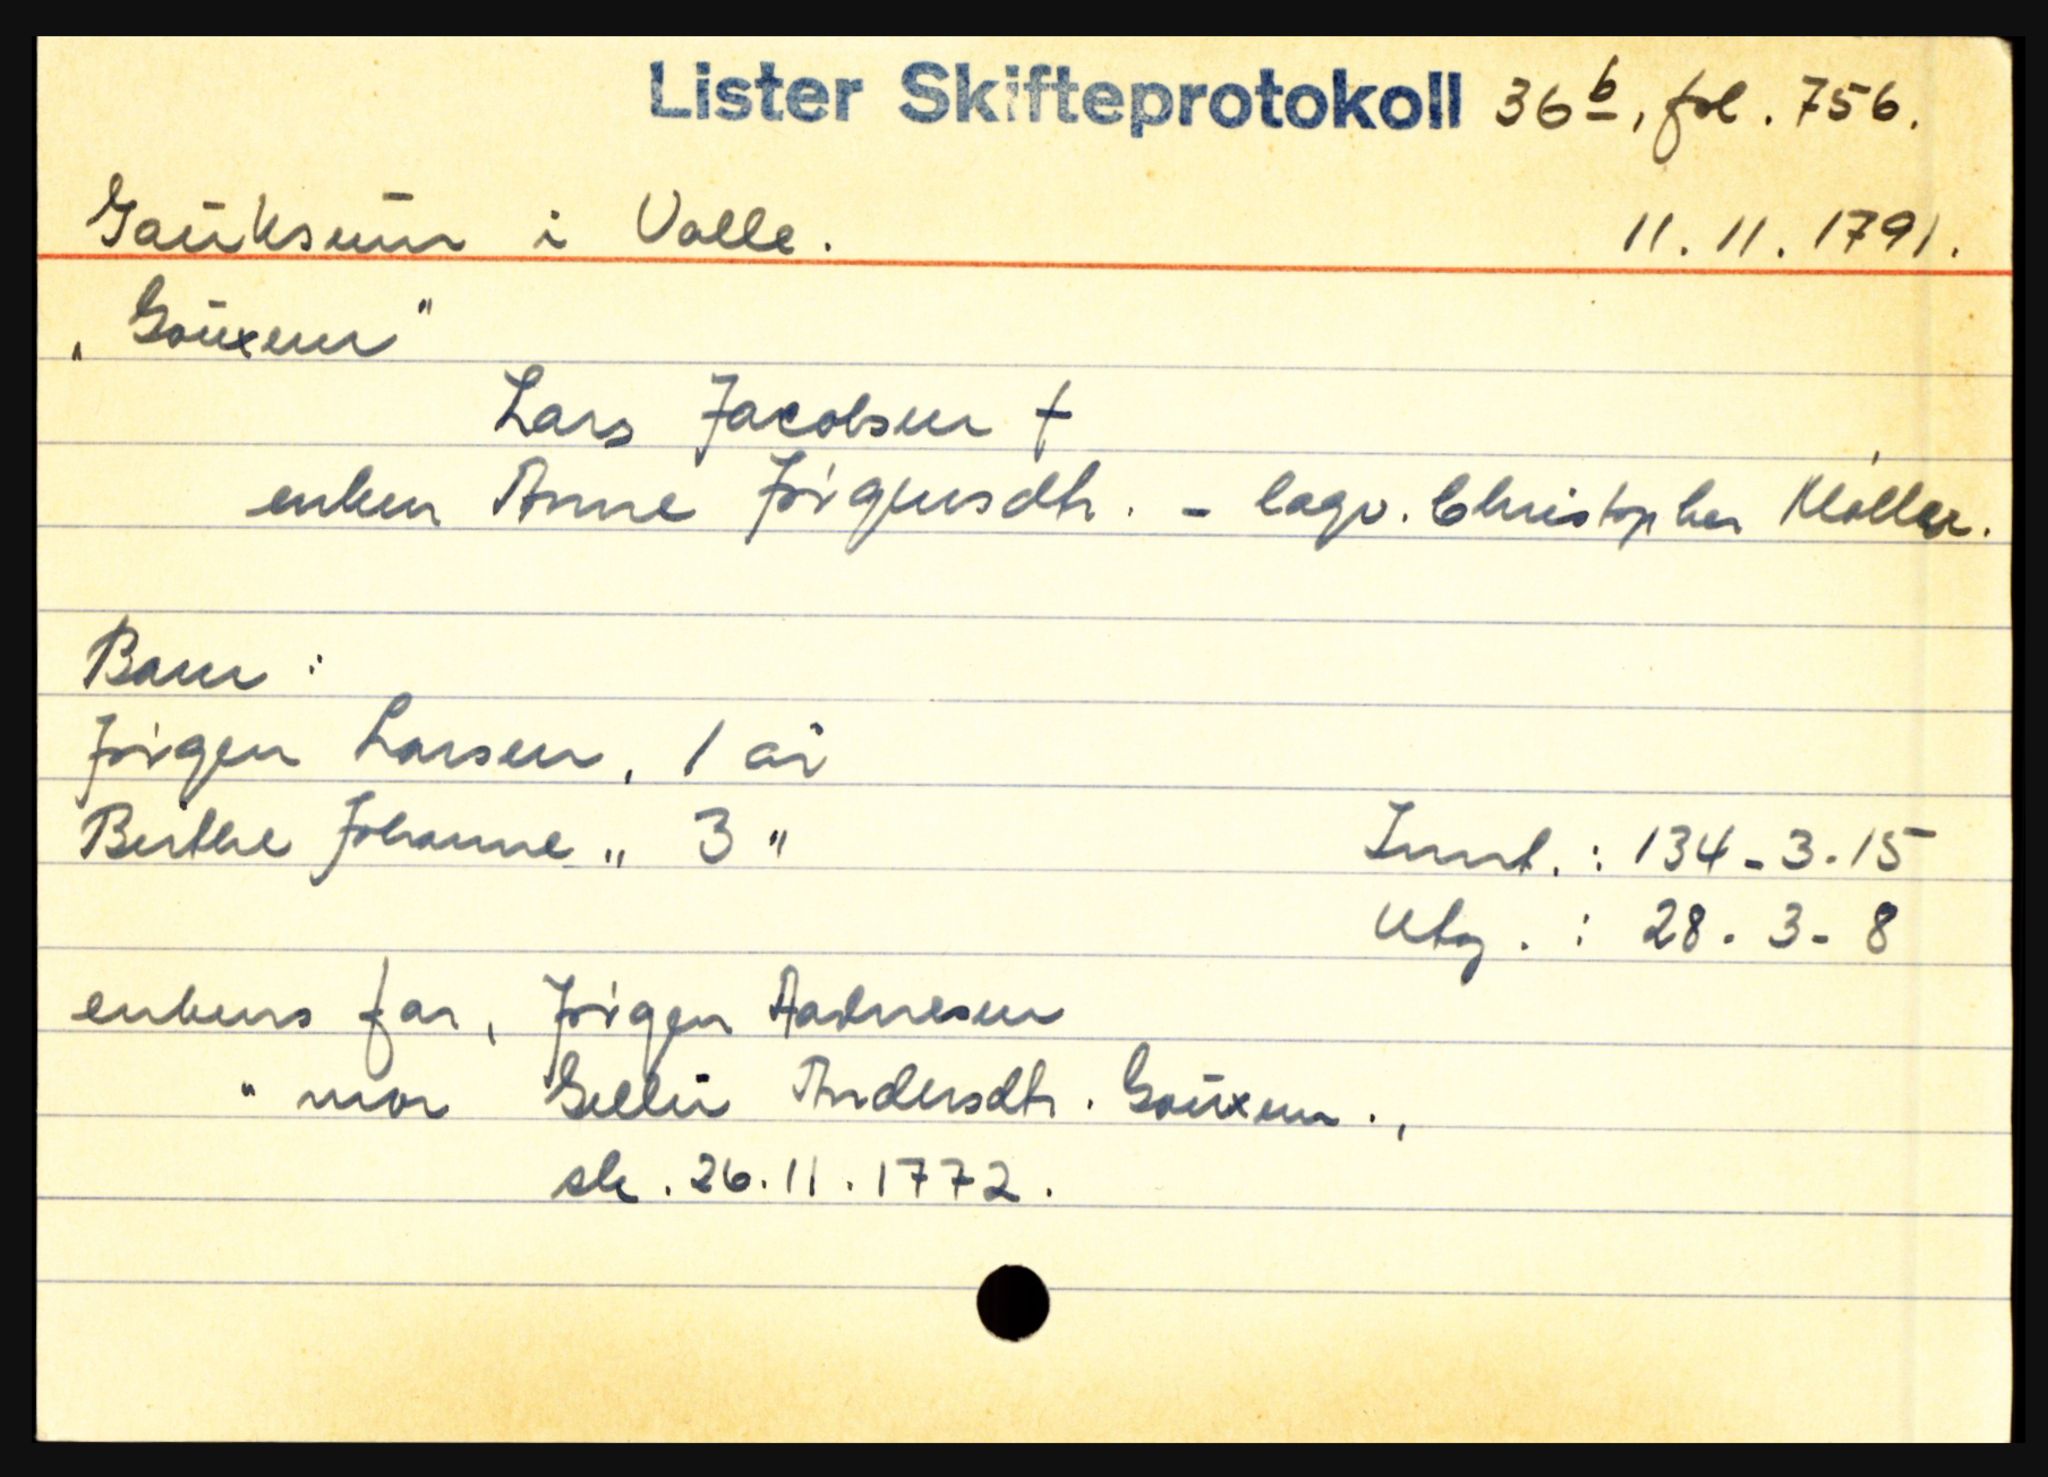 Lister Skifteprotokoll 36b, fol. 756.
Gauksum i Valle. 11.11.1791.
"Gauxem"
Lars Jacobsen †
enken Anne Jørgensdtr. - lagv. Christopher Møller.
Barn:
Jørgen Larsen, 1 år
Berthe Johanne " 3 "
Innt.: 134-3-15
Utg.: 28-3-8
enkens far, Jørgen Aadnesen
" mor Andersdtr. Gauxem.,
sk. 26.11.1772.